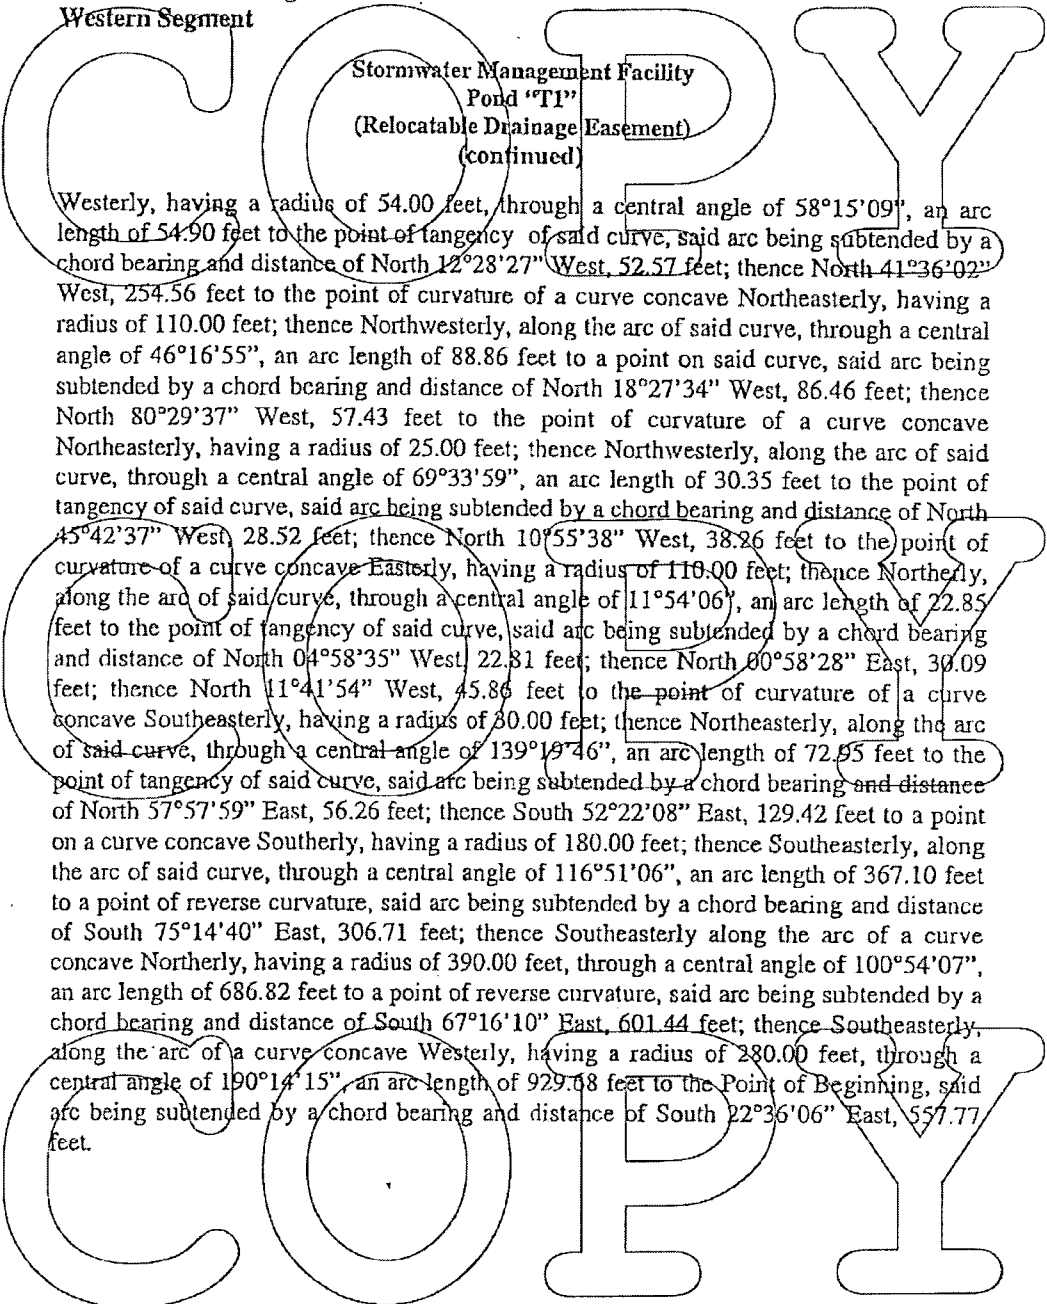 Western Segment
Stormwater Management Facility
Pond “T1”
(Relocatable Drainage Easement)
(continued)
Westerly, having a radius of 54.00 feet, through a central angle of 58°15’09”, an arc
length of 54.90 feet to the point of tangency of said curve, said arc being subtended by a
chord bearing and distance of North 12°28’27” West, 52.57 feet; thence North 41°36’02”
West, 254.56 feet to the point of curvature of a curve concave Northeasterly, having a
radius of 110.00 feet; thence Northwesterly, along the arc of said curve, through a central
angle of 46°16’55”, an arc length of 88.86 feet to a point on said curve, said arc being
subtended by a chord bearing and distance of North 18°27’34” West, 86.46 feet; thence
North 80°29’37” West, 57.43 feet to the point of curvature of a curve concave
Northeasterly, having a radius of 25.00 feet; thence Northwesterly, along the arc of said
curve, through a central angle of 69°33’59”, an arc length of 30.35 feet to the point of
tangency of said curve, said arc being subtended by a chord bearing and distance of North
45°42’37” West, 28.52 feet; thence North 10°55’38” West, 38.26 feet to the point of
curvature of a curve concave Easterly, having a radius of 110.00 feet; thence Northerly,
along the arc of said curve, through a central angle of 11°54’06”, an arc length of 22.85
feet to the point of tangency of said curve, said arc being subtended by a chord bearing
and distance of North 04°58’35” West, 22.81 feet; thence North 00°58’28” East, 30.09
feet; thence North 11°41’54” West, 45.86 feet to the point of curvature of a curve
concave Southeasterly, having a radius of 30.00 feet; thence Northeasterly, along the arc
of said curve, through a central angle of 139°19’46”, an arc length of 72.95 feet to the
point of tangency of said curve, said arc being subtended by a chord bearing and distance
of North 57°57’59” East, 56.26 feet; thence South 52°22’08” East, 129.42 feet to a point
on a curve concave Southerly, having a radius of 180.00 feet; thence Southeasterly, along
the arc of said curve, through a central angle of 116°51’06”, an arc length of 367.10 feet
to a point of reverse curvature, said arc being subtended by a chord bearing and distance
of South 75°14’40” East, 306.71 feet; thence Southeasterly along the arc of a curve
concave Northerly, having a radius of 390.00 feet, through a central angle of 100°54’07”,
an arc length of 686.82 feet to a point of reverse curvature, said arc being subtended by a
chord bearing and distance of South 67°16’10” East, 601.44 feet; thence Southeasterly,
along the arc of a curve concave Westerly, having a radius of 280.00 feet, through a
central angle of 190°14’15”, an arc length of 929.68 feet to the Point of Beginning, said
arc being subtended by a chord bearing and distance of South 22°36’06” East, 557.77
feet.
COPY
COPY
COPY